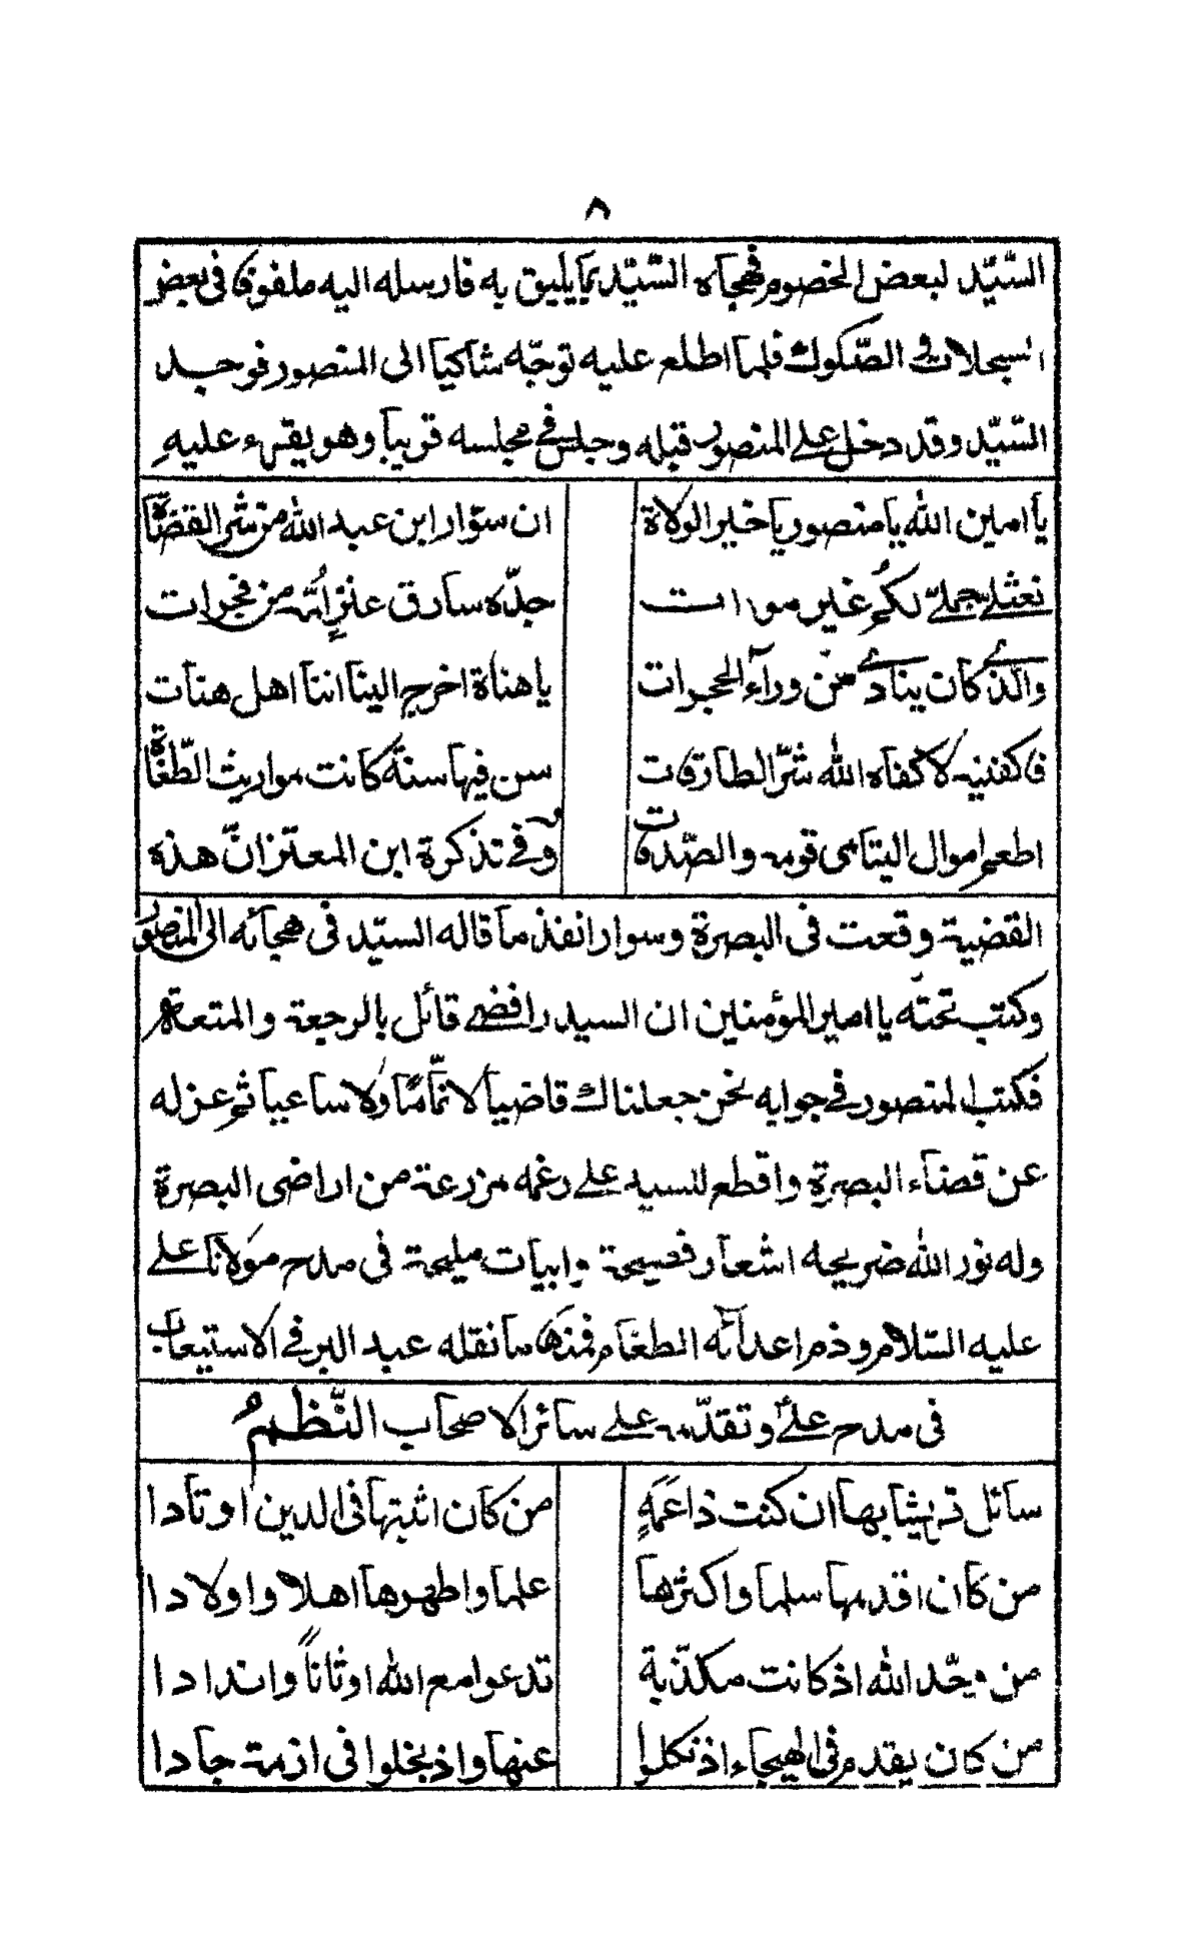 ٨
السّيّد لبعض الخصوم فهجاه السّيّد بما يليق به فارسله اليه ملفوفا فى بعض
السجلات فى الصّكوك فلما اطلع عليه توجّه شاكيا الى المنصور فوجد
السّيّد وقد دخل على المنصور قبله وجلس فى مجلسه قريبا وهو يقرء عليهِ
يا امين الله يا منصور يا خير الولاة ان سوّار ابن عبد الله من شر القضاة
نعثلى جملىّ لكُم غير موات جدّه سارق عنزٍ اُمّه من فجرات
والّذى كان ينادى من ورآء الحجرات يا هناة اخرج الينا اننا اهل هنات
فاكفنيه لا كفاه الله شرّ الطارقات سن فيها سنة كانت مواريث الطّغاة
اطعم اموال اليتامى قومه والصّدقات وفى تذكرة ابن المعتز انّ هذه
القضية وقعت فى البصرة وسوار انفذ ما قاله السيّد فى هجائه الى المنصور
وكتب تحته يا امير المؤمنين ان السيد رافضى قائل بالرجعة والمتعة
فكتب المنصور فى جوابه نحن جعلناك قاضيا لا نمّاما ولا ساعيا ثم عزله
عن قضآء البصرة واقطع للسيد على رغمه مزرعة من اراضى البصرة
وله نور الله ضريحه اشعار فصيحة وابيات مليحة فى مدح مولانا على
عليه السّلام وذم اعدائه الطغام فمنها ما نقله عبد البر فى الاستيعاب
فى مدح علىّ وتقدّمه على سائر الاصحاب النّظمُ
سائل قريشا بها ان كنت ذا عَمَهٍ من كان اثبتها فى الدين اوتادا
من كان اقدمها سلما واكثرها علما واطهرها اهلا واولادا
من وحّد الله اذ كانت مكذّبة تدعوا مع الله اوثاناً واندادا
من كان يقدم فى الهيجاء اذ نكلوا عنها واذ بخلوا فى ازمة جادا